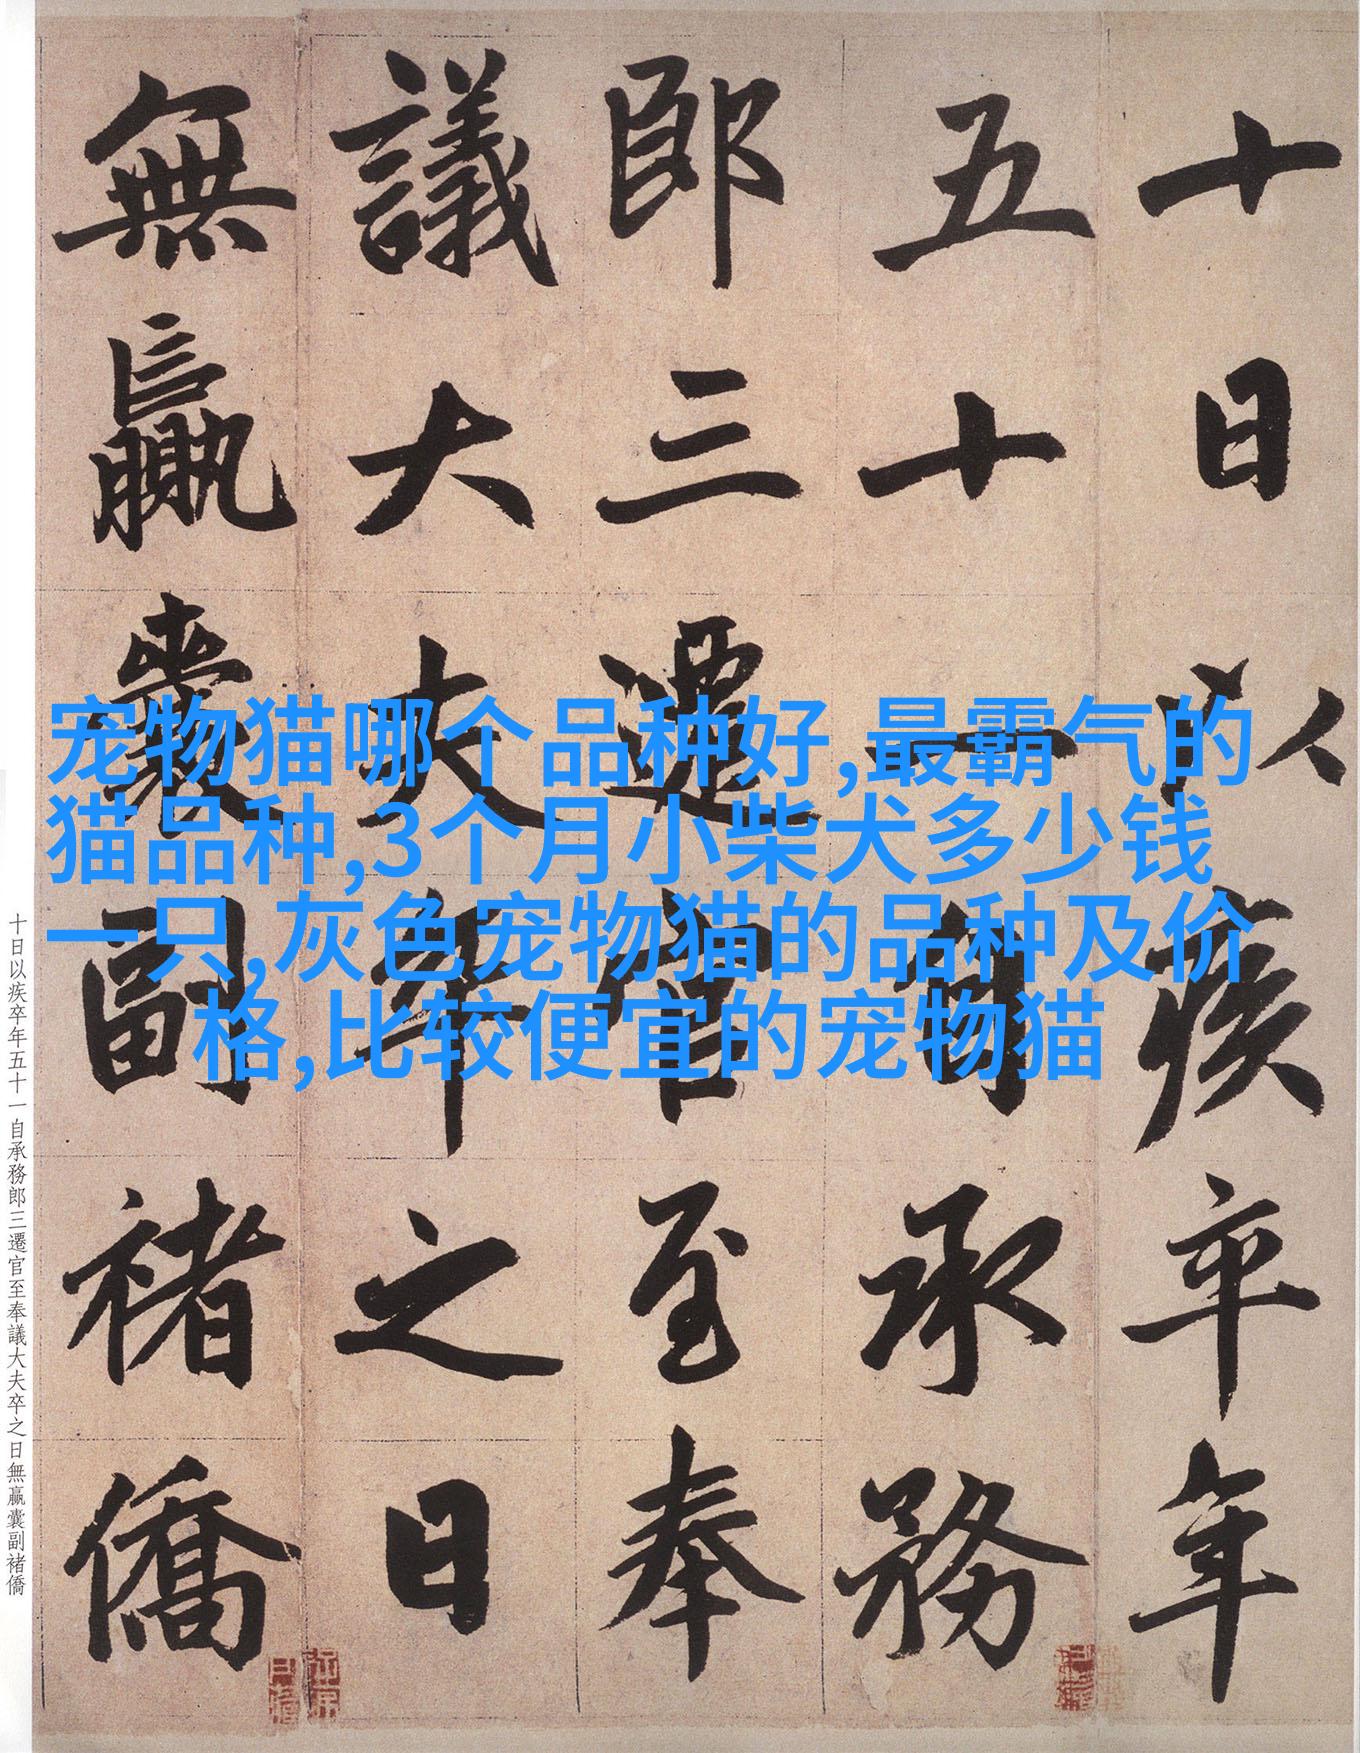 十日以疾卒年
五十一自承務
郎三遷官至奉
議大夫卒之日
無贏囊副褚僑
宠物猫哪个品种好,最霸气的
猫品种,3个月小柴犬多少钱
一只,灰色宠物猫的品种及价
格,比较便宜的宠物猫
十日以疾卒年五十一自承務郎三遷官至奉議大夫卒之日無贏囊副褚僑